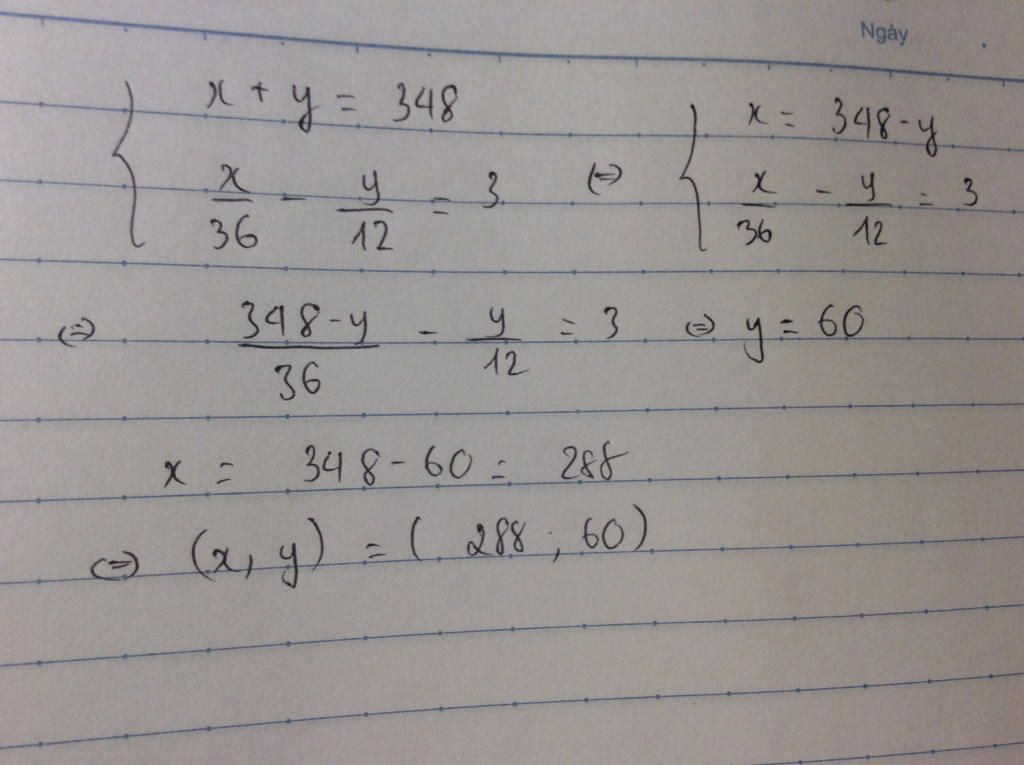 Ngày
{ x + y = 348
x/36 - y/12 = 3 <=> { x = 348 - y
x/36 - y/12 = 3
<=> (348 - y)/36 - y/12 = 3 <=> y = 60
x = 348 - 60 = 288
<=> (x, y) = (288; 60)